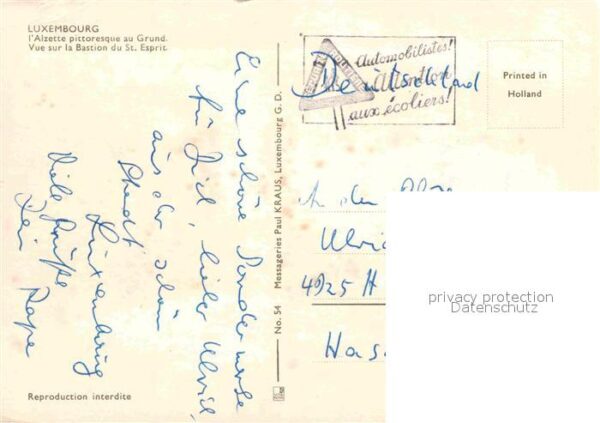 LUXEMBOURG
l'Alzette pittoresque au Grund.
Vue sur la Bastion du St. Esprit.
Eine schöne Sondermarke
für Dich, lieber Ulrich,
aus der schön
Stadt
Luxemburg
Viele Grüße
Dein Papa
Reproduction interdite
No. 54 Messageries Paul KRAUS, Luxembourg G. D.
Automobilistes!
Attention
aux écoliers!
Deutschland
Printed in
Holland
An den
Ulric
4925 H
Has
privacy protection
Datenschutz